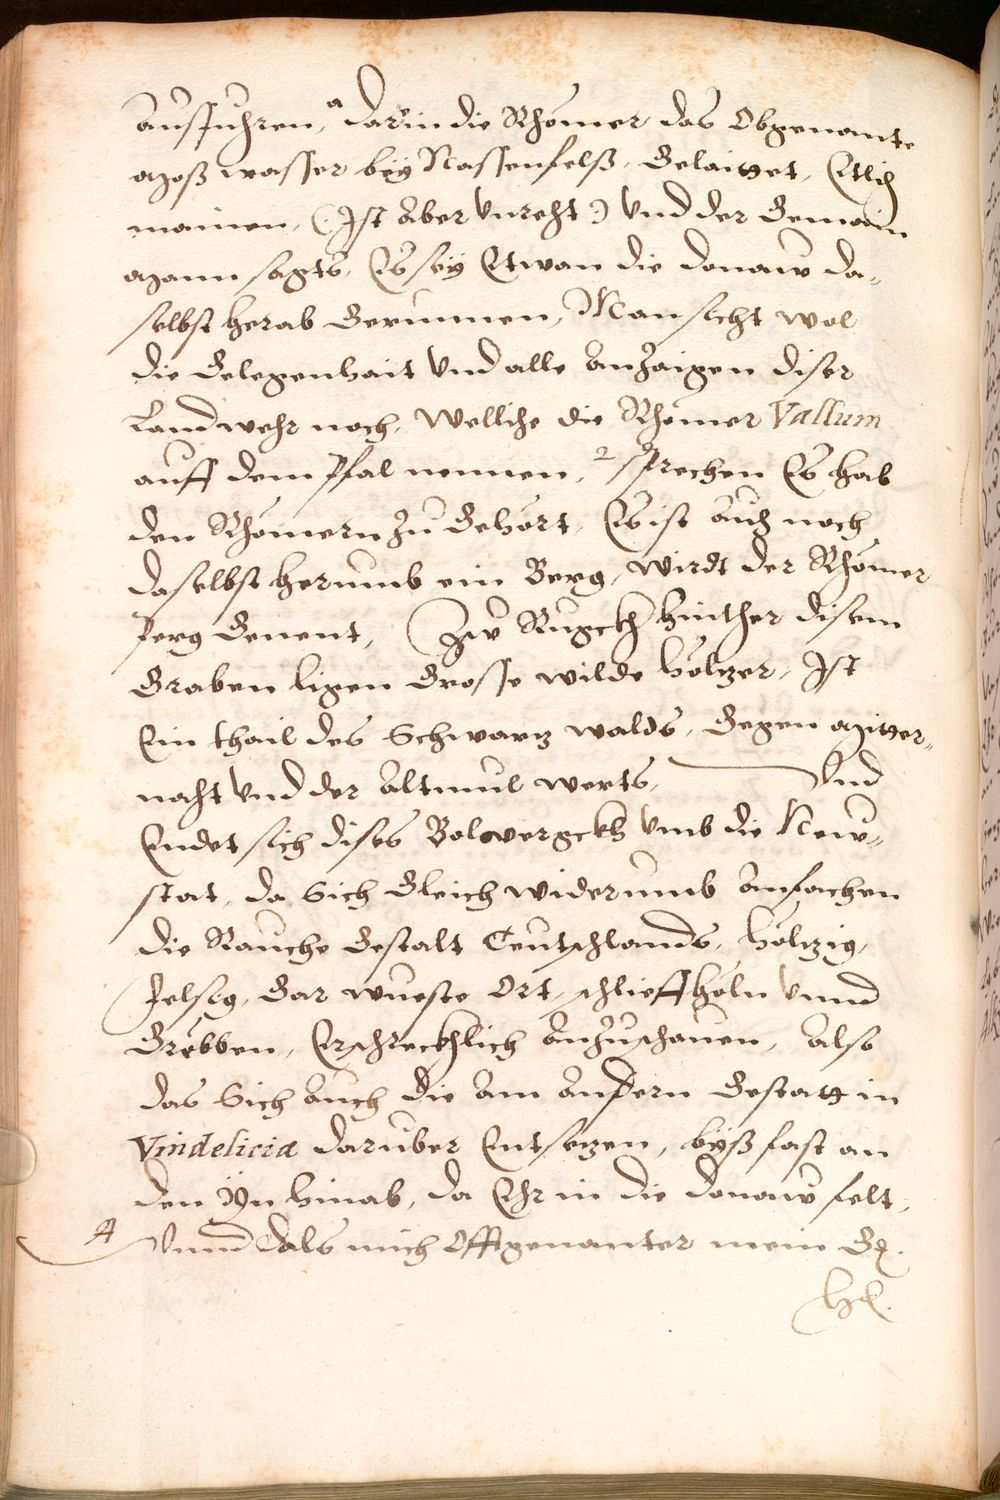 ausfuhren, a darin die Rhömer das Obgenante
Moß wasser bey Nassenfelß, Gelaittet, Etlich
mainen, (: Ist Aber Unreht :) Und der Gemain
Mann sagts, Es sey Etwan die donaw da-
selbst herab Gerunnen, Man sicht wol
die Gelegenhait Und alle Anzaigen diser
Landwehr noch, Welliche die Rhömer Vallum
auff dem Pfal nennen, 2 sprechen Es hab
den Rhömern zu Gehört, Es ist auch noch
daselbst herumb ein Berg, wirdt der Rhömer
Perg Genent, Zw Rugckh hinther disem
Graben ligen Grosse wilde höltzer, Ist
Ein thail des Schwartz walds, Gegen Mitter-
naht Und der Altmul werts, Und
Endet sich dises Bolwergckh Umb die New-
stat, da Sich Gleich widerumb Anfachen
die Rauche Gestalt Teutschlands, höltzig,
felsig, Gar wueste Ort, schlieffhöln Unnd
Grebben, Erschreckhlich Anzuschauen, Also
das Sich Auch die Am Andern Gestatt in
Vindelicia daruber Entsetzen, byß fast an
den Yn hinab, da Ehr in die donaw felt,
A Unnd Als mich Offtgenanter mein G.
H.